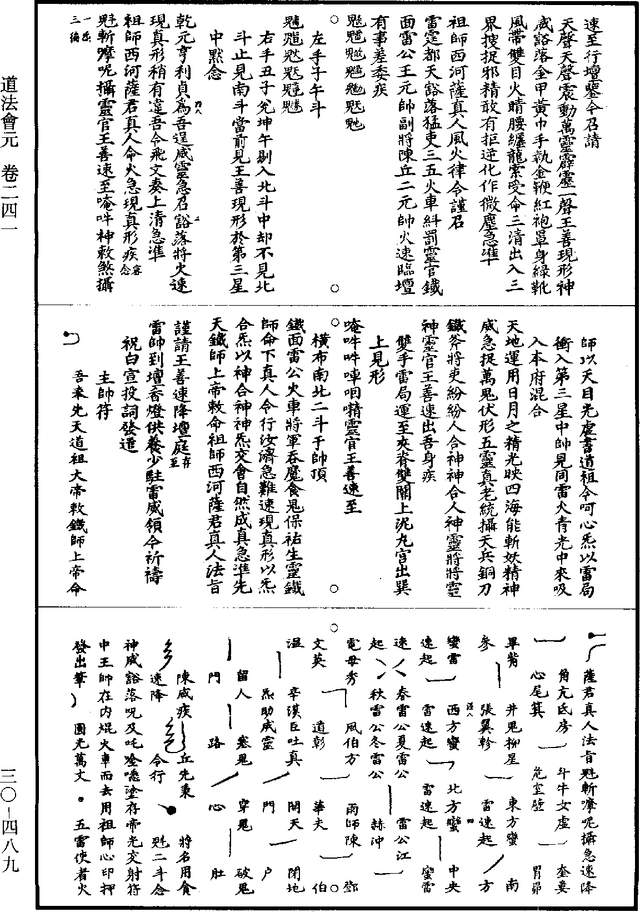 道法會元　卷二四一
三〇—四八九
速至行壇鑒令召請
天聲天聲震動萬靈霹靂一聲王善現形神
威豁落金甲黃巾手執金鞭紅袍罩身綠靴
風帶雙目火睛腰纏龍索受命三清出入三
界搜捉邪精敢有拒逆化作微塵急準
祖師西河薩真人風火律令謹召
雷霆都天豁落猛吏三五火車糾罰靈官鐵
面雷公王元帥副將陳丘二元帥火速臨壇
有事差委疾
左手子午斗
右手丑子兊坤午剔入北斗中却不見北
斗止見南斗當前見王善現形於第三星
中默念
乾元亨利貞為吾逞威靈急召豁落將火速
現真形稍有違吾令飛文奏上清急準
祖師西河薩君真人命火急現真形疾
魁斬摩呢攝靈官王善速至唵吽神敕煞攝
師以天目先虛書道祖令可心炁以雷局
衝入第三星中帥見同雷火青光中來吸
入本府混合
天地運用日月之精光映四海能斬妖精神
威急捉萬鬼伏形五靈真老統攝天兵銅刀
鐵斧將吏紛紛人合神神合人神靈將將靈
神靈官王善速出吾身疾
雙手雷局運至夾脊雙關上泥丸宮出巽
上見形
唵吽吽㖿啒㬝靈官王善速至
橫布南北二斗于帥頂
鐵面雷公火車將軍吞魔食鬼保祐生靈鐵
師命下真人令行汝濟急難速現真形以炁
合炁以神合神神炁交會自然成真急準先
天鐵師上帝敕命祖師西河薩君真人法旨
謹請王善速降壇庭
雷帥到壇香燈供養少駐雷威領令祈禱
祝白宣投詞發遣
主帥符
吾奉先天道祖大帝敕鐵師上帝命
薩君真人法旨魁斬摩呢攝急速降
角亢氐房　斗牛女虛　奎婁
心尾箕　危室壁　胃昴
畢觜　井鬼柳星　東方蠻　南
參　張翼軫　雷速起　方
蠻雷　西方蠻　北方蠻　中央
速起　雷速起　雷速起　蠻雷
速　春雷公夏雷公　雷公江
起　秋雷公冬雷公　赫沖
電母秀　風伯方　雨師陳　鄧
文英　道彰　華夫　伯
溫　辛漢臣吐真　開天　閉地
炁助威靈　門　戶
留人　塞鬼　穿鬼　破鬼
門　路　心　肚
陳威疾　丘先柬　將名用食
速降　令行　魁二斗念
神威豁落呪及吒唵嚧塗存帝光交射符
中王帥在內焜火車而去用祖師心印押
發出筆　圓光萬丈　五雷使者火